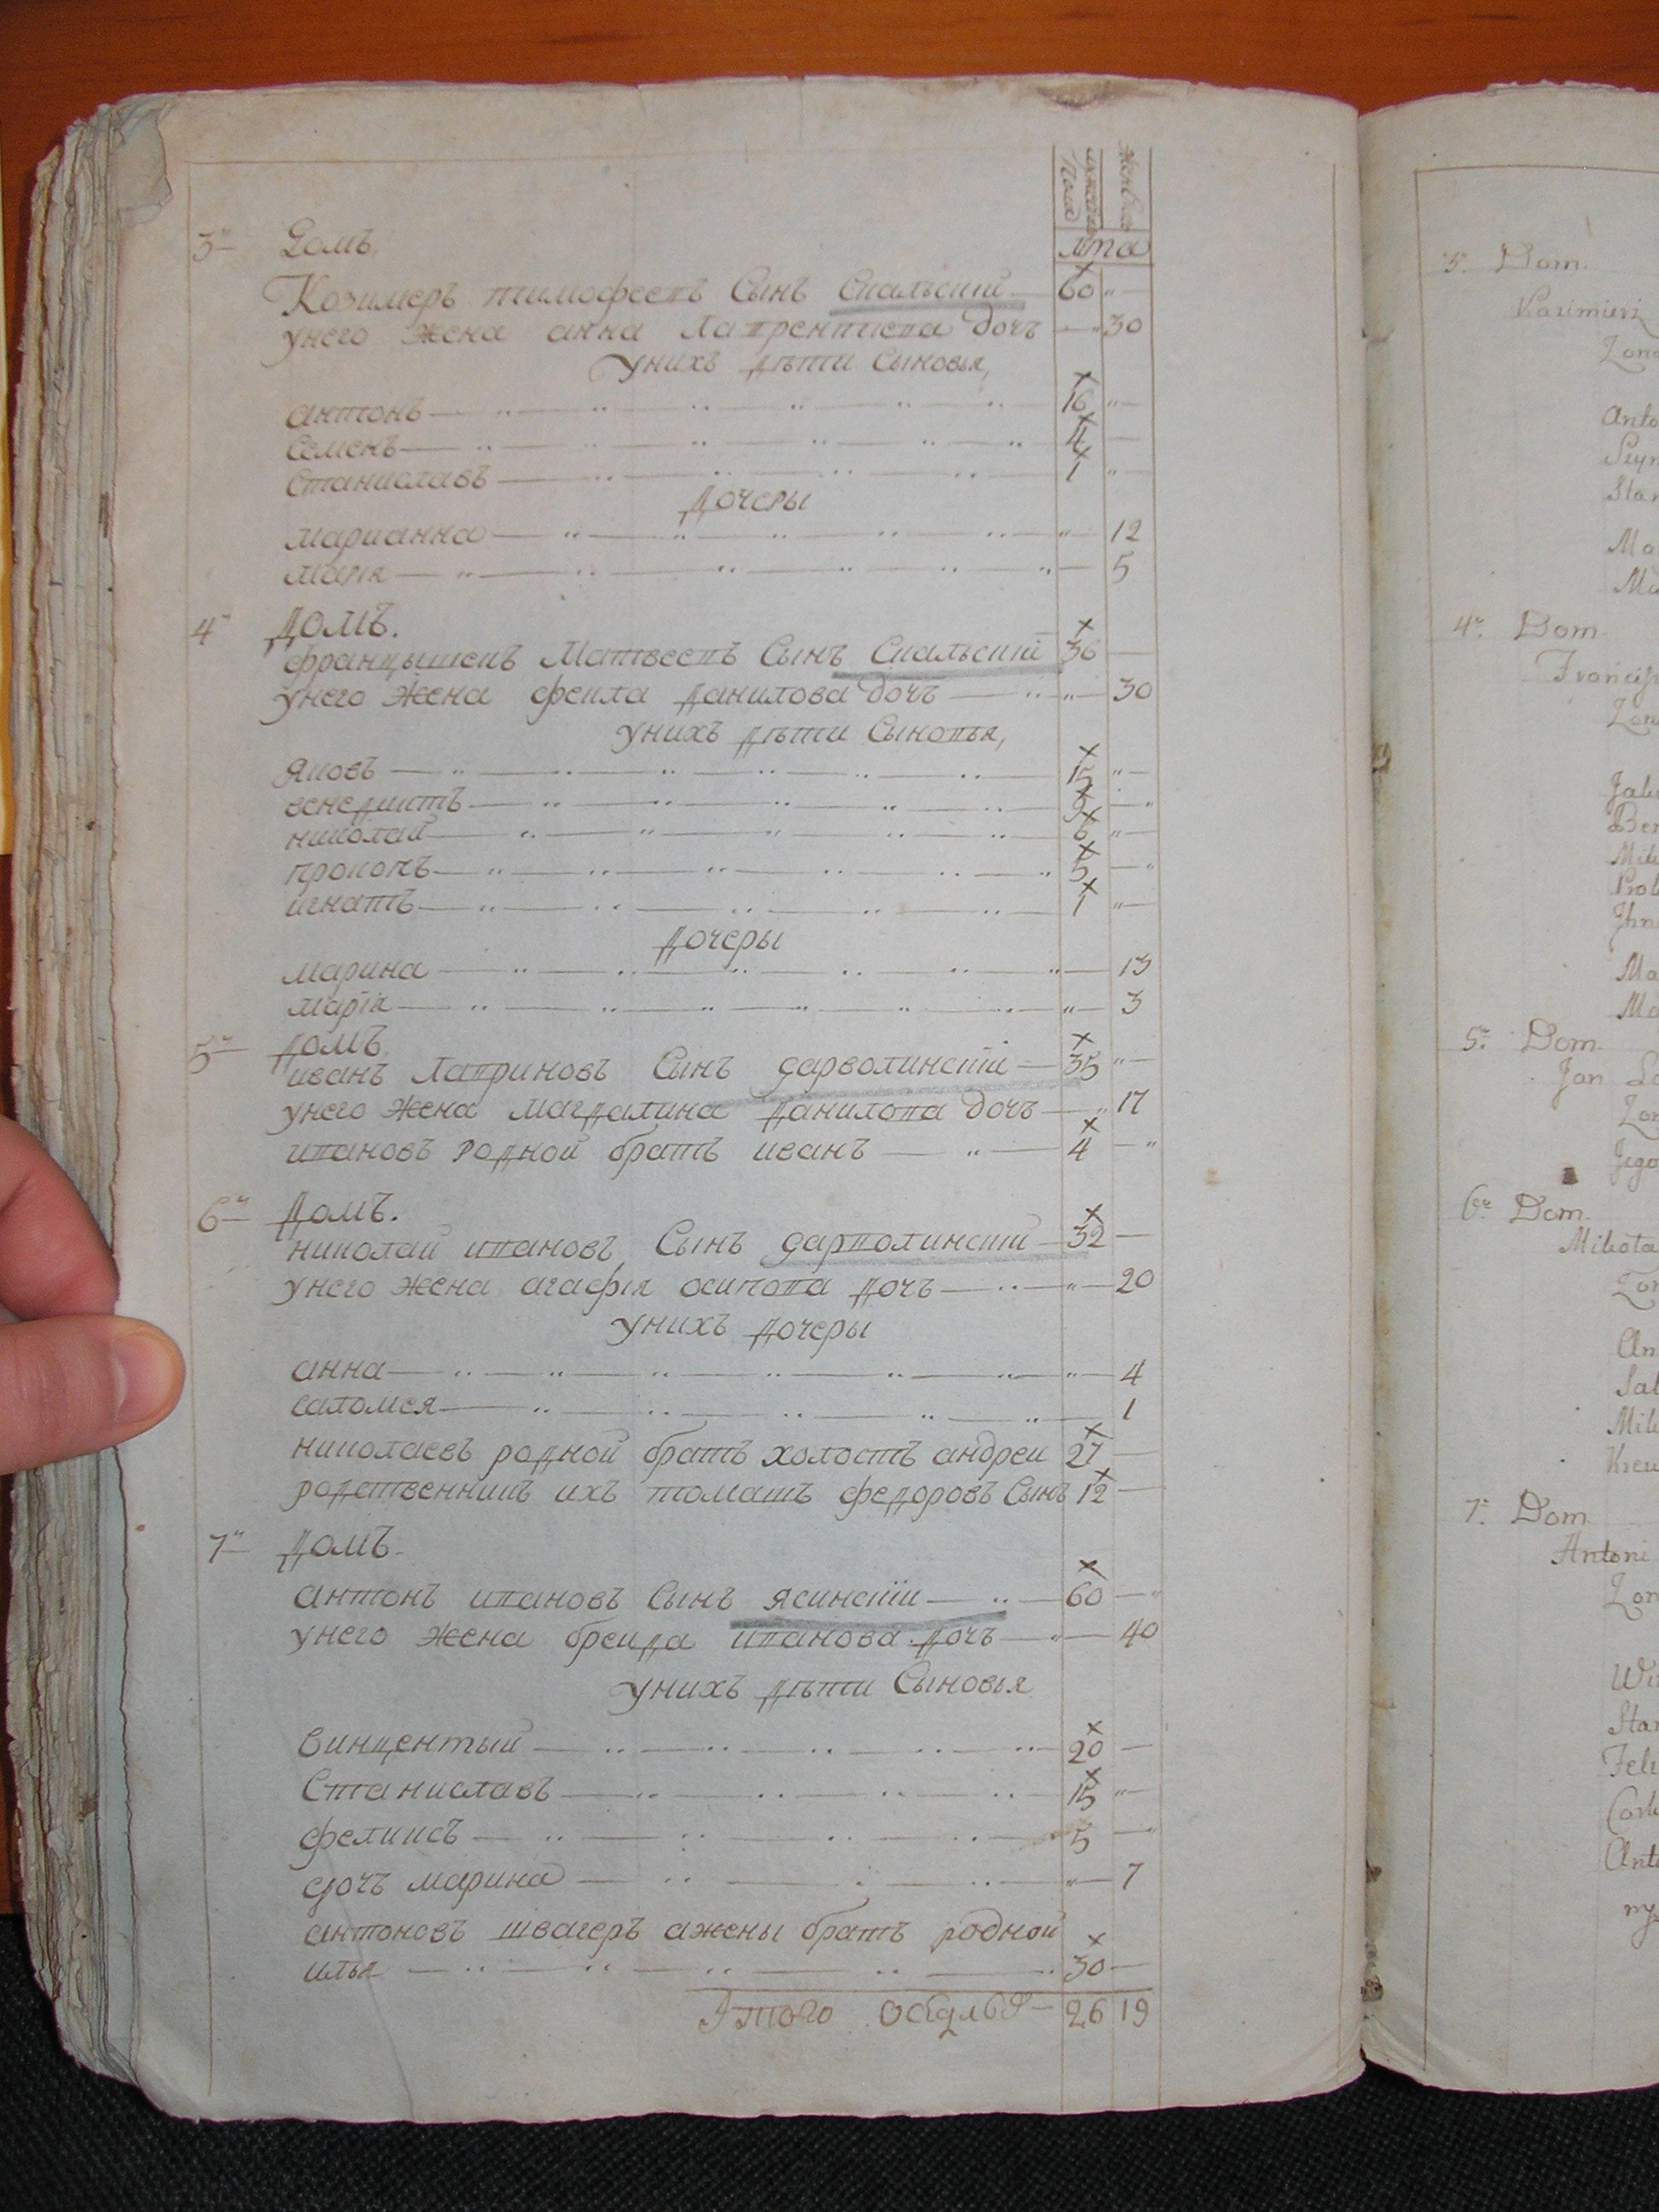 мужеска Пола
женска
лѣта
3й Домъ.
Козимеръ тимофеевъ Сынъ Скальскій — 60 „ —
унего жена анна Лавренътиева дочъ — „ 30
унихъ дѣти Сыновья,
антонъ — 16 „ —
Семенъ — 4 —
Станиславъ — 1 „ —
Дочеры
марианна — „ 12
марія — „ — 5
4й Домъ.
францышекъ Матвеевъ Сынъ Скальскій 36 —
унего жена фекла данилова дочъ — „ „ — 30
унихъ дѣти Сыновья,
яковъ — 15 „ —
венедиктъ — 9 — „
николай — 6 „ —
прокопъ — 5 — „
игнатъ — 1 „ —
Дочеры
марина — „ — 13
марія — „ — 3
5й домъ
иванъ Лавриновъ Сынъ дарволинскій — 35 „ —
унего жена магдалина данилова дочъ — „ 17
ивановъ родной братъ иванъ — „ — 4 — „
6й Домъ.
николай ивановъ Сынъ дарволинскій — 32 —
унего жена агафія осипова дочъ — „ — 20
унихъ дочеры
анна — „ — 4
саломея — 1
николаевъ родной братъ холостъ андреи 27 —
родственникъ ихъ томашъ федоровъ Сынъ 12 —
7й домъ
антонъ ивановъ Сынъ ясинскіи — 60 — „
унего жена бреида иванова дочъ — „ — 40
унихъ дѣти Сыновья
винцентый — 20 —
Станиславъ — 15 „ —
феликсъ — 5 — „
дочъ марина — „ — 7
антоновъ швагеръ ажены братъ родной
илья — 30 —
Этого 26 19
3й Dom.
Kazimierz
Żona
Anto
Szym
Stan
Ma
Ma
4й Dom.
Francisz
Żon
Jaku
Ben
Mik
Ma
Ma
5й Dom.
Jan
Żon
Jego
6й Dom.
Mikoła
Żon
An
Sal
Mik
7й Dom
Antoni
Żon
Win
Stan
Feli
Anto